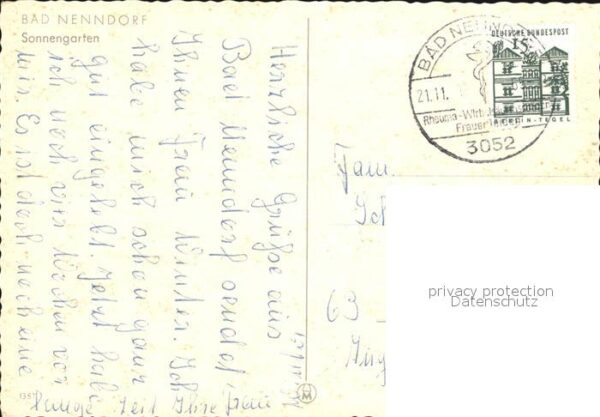 BAD NENNDORF
Sonnengarten
Herzliche Grüße aus
Bad Nenndorf sendet
Ihnen Frau Winter. Ich
habe mich schon ganz
gut eingelebt. Jetzt habe
ich noch vier Wochen vor
mir. Es ist doch noch eine
lange Zeit Ihre Frau
BAD NENNDORF
21.11.
Rheuma-Wirbelsäulen
Frauen
3052
DEUTSCHE BUNDESPOST
15
BERLIN-TEGEL
Fam.
63
privacy protection
Datenschutz